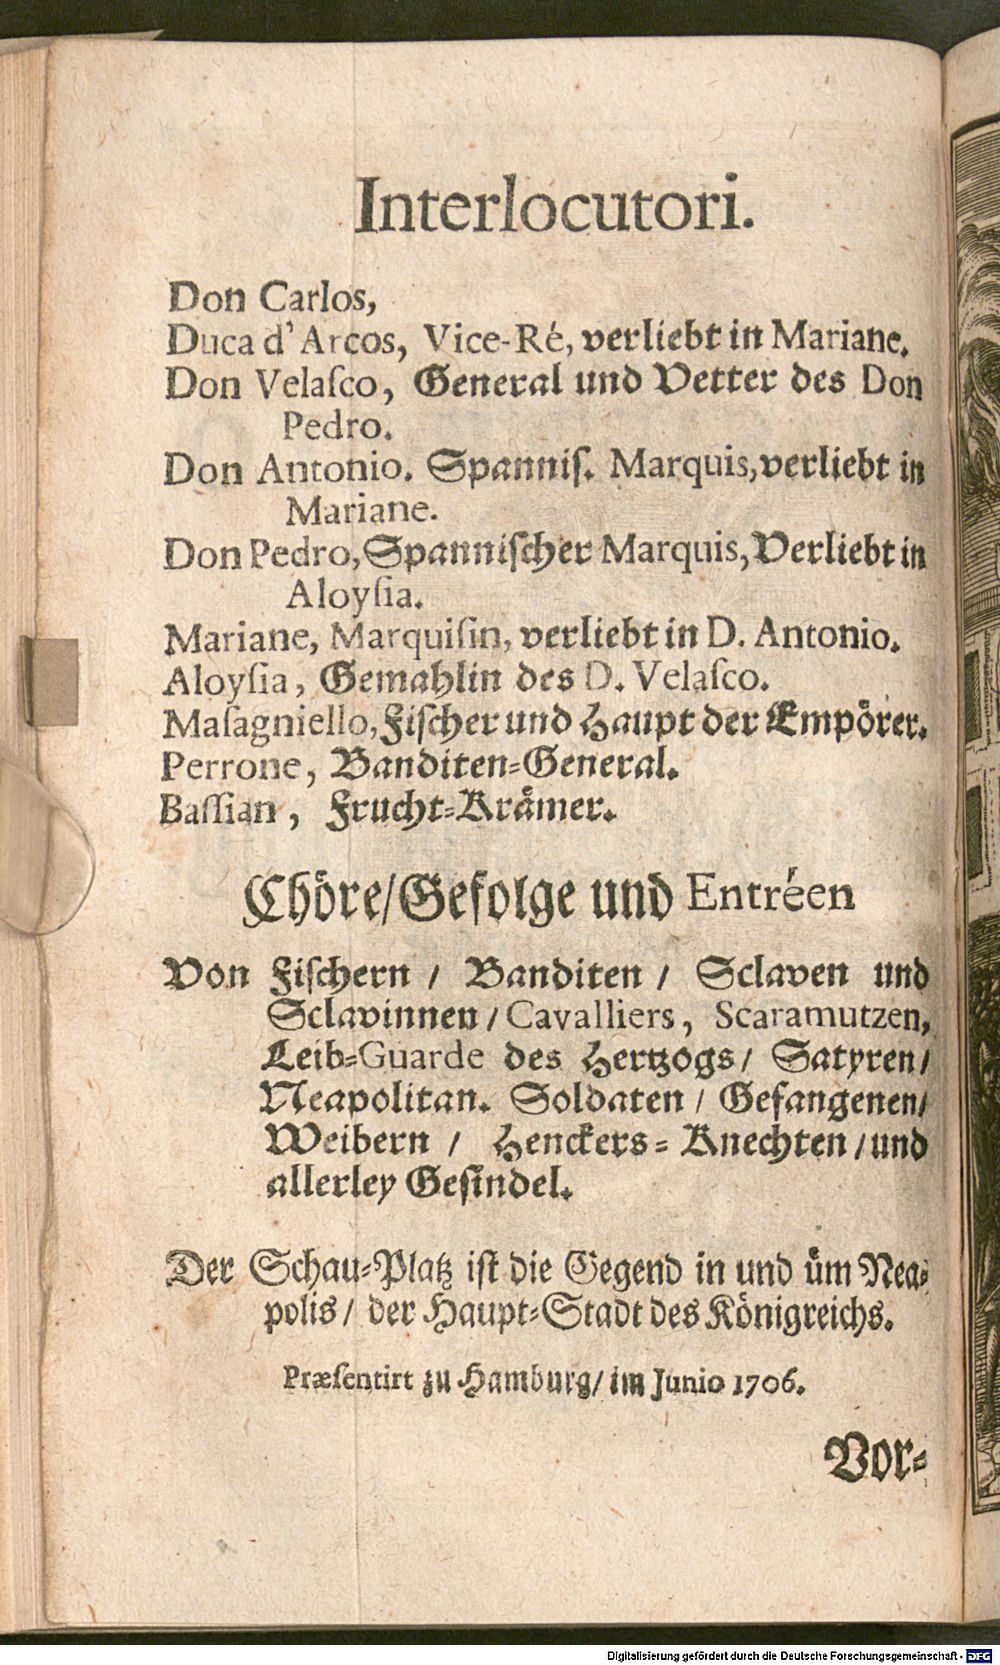 Interlocutori.
Don Carlos,
Duca d' Arcos, Vice-Ré, verliebt in Mariane.
Don Velaſco, General und Vetter des Don
Pedro.
Don Antonio. Spanniſ. Marquis, verliebt in
Mariane.
Don Pedro, Spanniſcher Marquis, Verliebt in
Aloyſia.
Mariane, Marquiſin, verliebt in D. Antonio.
Aloyſia, Gemahlin des D. Velaſco.
Maſagniello, Fiſcher und Haupt der Empörer.
Perrone, Banditen-General.
Baſſian, Frucht-Krämer.
Chöre/ Gefolge und Entréen
Von Fiſchern / Banditen / Sclaven und
Sclavinnen / Cavalliers, Scaramutzen,
Leib-Guarde des Hertzogs/ Satyren/
Neapolitan. Soldaten / Gefangenen/
Weibern / Henckers-Knechten / und
allerley Geſindel.
Der Schau-Platz iſt die Gegend in und üm Nea-
polis/ der Haupt-Stadt des Königreichs.
Præſentirt zu Hamburg/ im Junio 1706.
Vor-
Digitalisierung gefördert durch die Deutsche Forschungsgemeinschaft - DFG